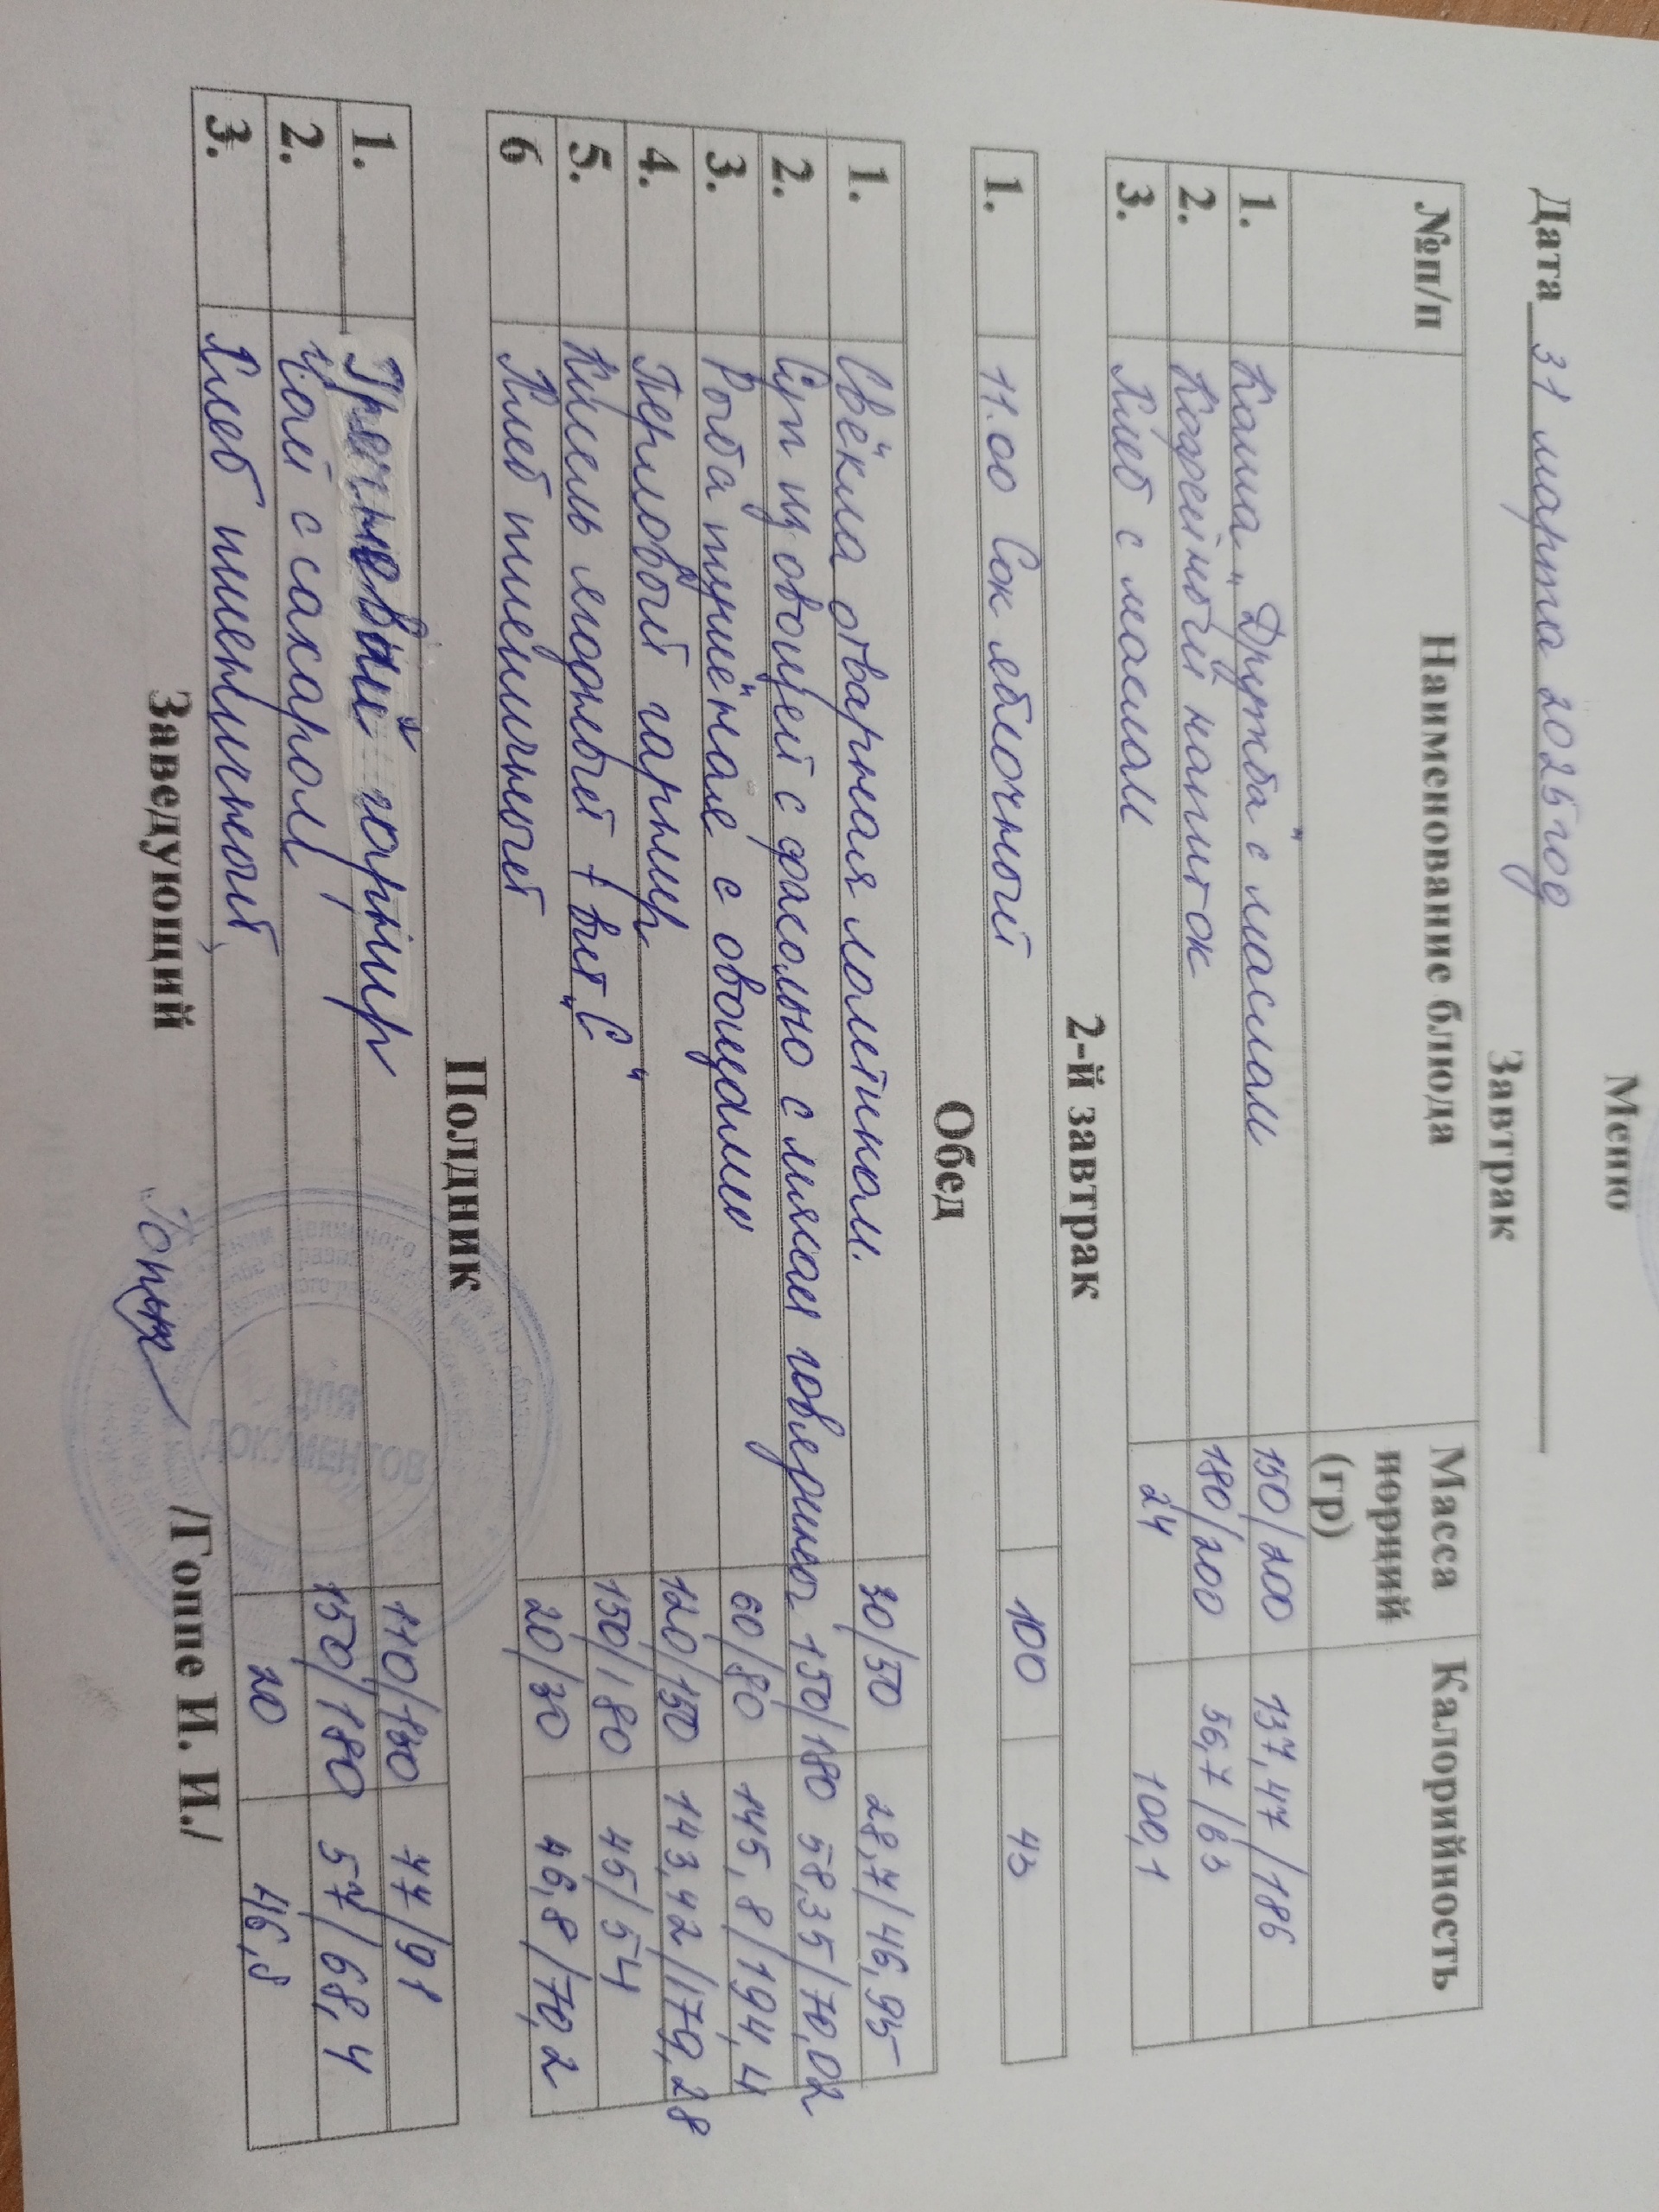 Меню
Дата 31 марта 2025 год
Завтрак
№п/п Наименование блюда Масса порций (гр) Калорийность
1. Каша "Дружба" с маслом 150/200 137,47/186
2. Кофейный напиток 180/200 56,7/63
3. Хлеб с маслом 24 100,1
2-й завтрак
1. 11.00 Сок яблочный 100 43
Обед
1. Свёкла отварная ломтиком. 30/50 28,7/46,95
2. Суп из овощей с фасолью с мясом говядины 150/180 58,35/70,02
3. Рыба тушёная с овощами 60/80 145,8/194,4
4. Перловый гарнир 120/150 143,42/179,28
5. Кисель ягодный + вит "С" 150/180 45/54
6 Хлеб пшеничный 20/30 46,8/70,2
Полдник
1. Гречневый гарнир 110/130 77/91
2. Чай с сахаром 150/180 57/68,4
3. Хлеб пшеничный 20 46,8
Заведующий /Гоппе И. И./
Для
ДОКУМЕНТОВ